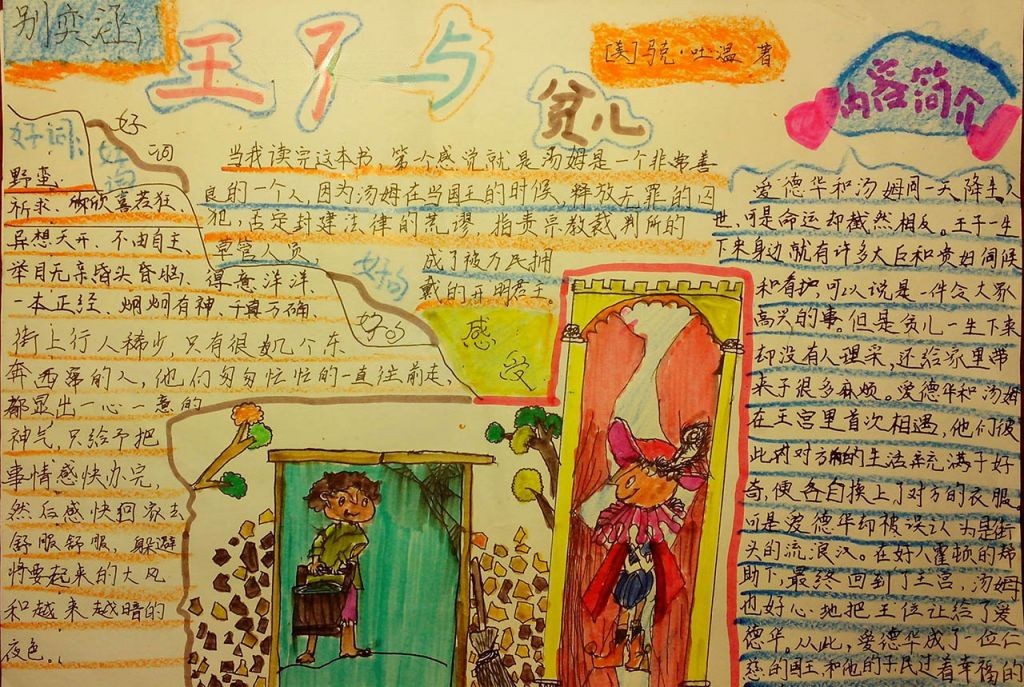 别奕涵
王子与
贫儿
[美]马克·吐温 著
内容简介
好词
好词
野蛮、
祈求、欣喜若狂、
异想天开、不由自主、
举目无亲昏头昏脑、得意洋洋、
一本正经、炯炯有神、千真万确、
好句
好句
街上行人稀少,只有很如几个东
奔西荡的人,他们匆匆忙忙的一直往前走,
都显出一心一意的
神气,只给予把
事情感快办完,
然后感快回家去
舒服舒服,躲避
将要起来的大风
和越来越暗的
夜色。
当我读完这本书,第个感说就是汤姆是一个非常善
良的一个人,因为汤姆在当国王的时候,释放无罪的囚
犯,否定封建法律的荒谬,指责宗教裁判所的
草官人员,
成了被万民拥
戴的开明君王。
感
受
爱德华和汤姆同一天降生人
世,可是命运却截然相反。王子一生
下来身边就有许多大臣和贵妇伺候
和看护,可以说是一件令大家
高兴的事。但是贫儿一生下来
却没有人理采,还给家里带
来了很多麻烦。爱德华和汤姆
在王宫里首次相遇,他们彼
此对对方的生活充满了好
奇,便各自换上了对方的衣服
可是爱德华却被误认为是街
头的流浪汉。在好人霍顿的帮
助下,最终回到了王宫,汤姆
也好心地把王位让给了爱
德华。从此,爱德华成了一位仁
慈的国王和他的子民过着幸福的